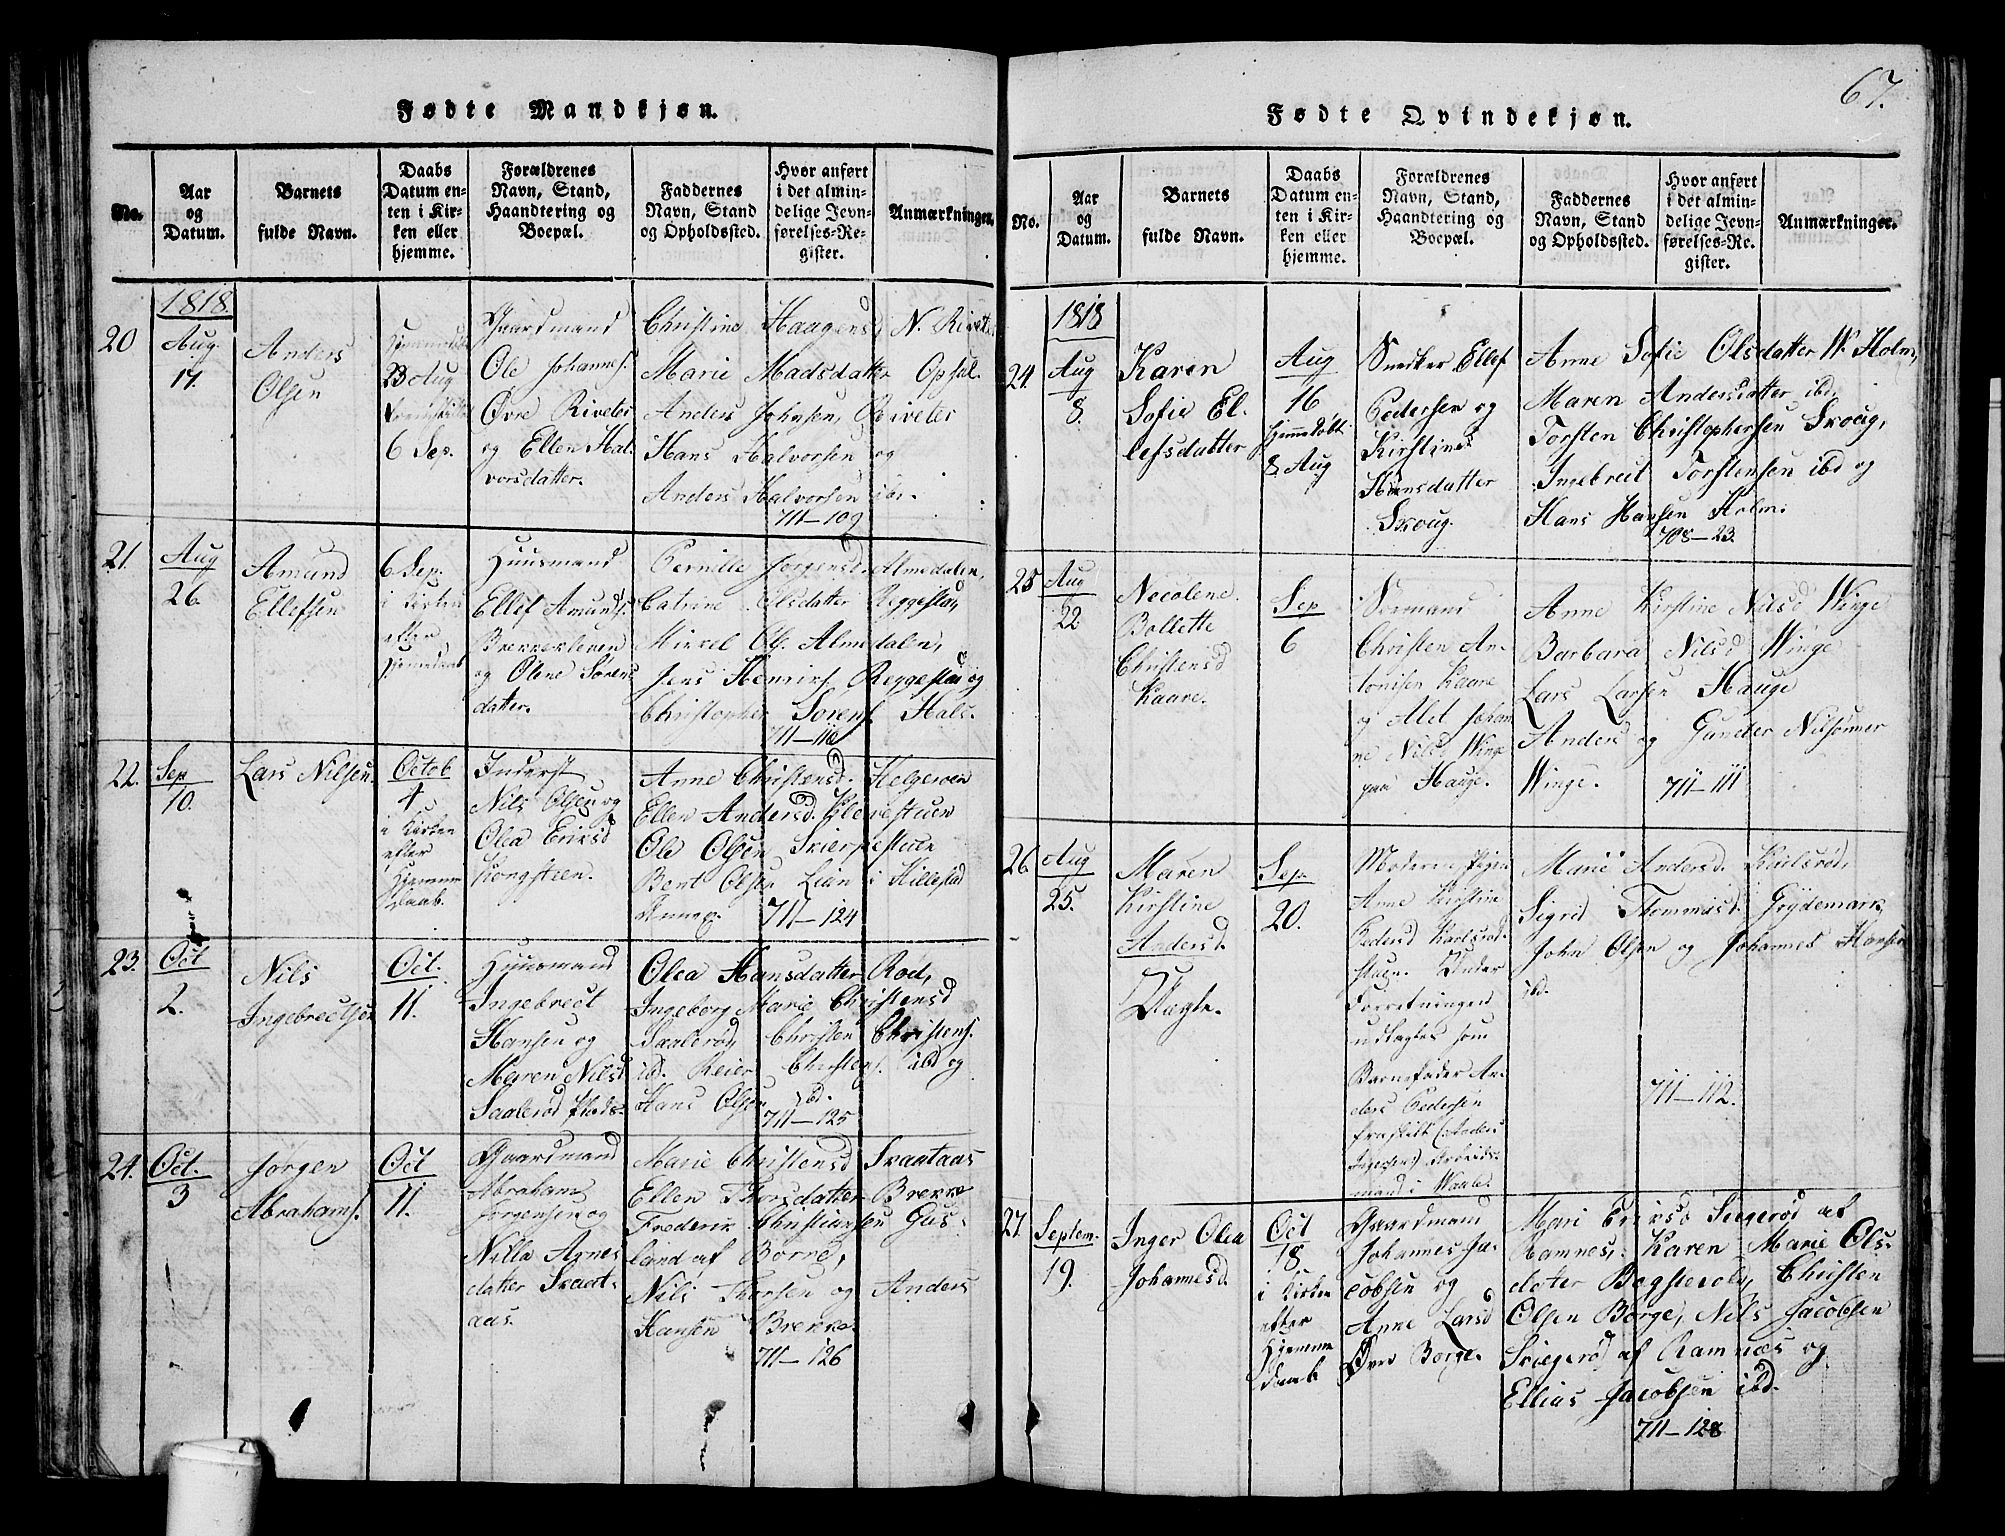 Fødte Mandkjøn.
No.
Aar
og
Datum.
Barnets
fulde Navn.
Daabs
Datum en-
ten i Kir-
ken eller
hjemme.
Forældrenes
Navn, Stand,
Haandtering og
Boepæl.
Faddernes
Navn, Stand
og Opholdssted.
Hvor anført
i det almin-
delige Jevn-
førelses-Re-
gister.
Anmærkninger.
1818.
20
Aug.
17.
Anders
Olsen
23 Aug
6 Sep.
Gaardmand
Ole Johannes.
Øvre Riveter
og Ellen Hal-
vorsdatter.
Christine Haagensd N. Riveter
Marie Madsdatter Opsal.
Anders Johnsen, Riveter
Hans Halvorsen og
Anders Halvorsen ibi.
711–109
21.
Aug
26.
Amund
Ellefsen
6 Sep.
i Kirken
efter
Hjemmedaab
Huusmand
Ellef Amunds.
Brekkekleven
og Olene Sørens
datter.
Pernille Jørgensd. Almedalen,
Catrine Olsdatter Reggestad,
Mikkel Ol. Almedalen,
Jens Henriks. Reggestad og
Christopher Sørens. Hals.
711–110
22.
Sep
10.
Lars Nilsen
Octob
4
i Kirken
efter
Hjemme
daab.
Inderst
Nils Olsen og
Olea Eriksd
Kongsteen.
Anne Christensd. Helgeroen
Ellen Andersd. Klevestuen
Ole Olsen Skierpestuen
Bent Olsen Lian i Hillestad
Annex.
711–124
23.
Oct
2.
Nils
Ingebrectsen
Oct.
11.
Huusmand
Ingebrect
Hansen og
Maren Nilsd
Saalerød Plads.
Olea Hansdatter Rød,
Ingeborg Marie Christensd
Saalerød, Christen Christens.
ibd. Reier Christens. ibd og
Hans Olsen ibd.
711–125
24.
Oct.
3
Jørgen
Abrahams.
Oct
11.
Gaardmand
Abraham
Jørgensen og
Nilla Agnes
datter Skaat-
aas.
Marie Christensd Skaataas
Ellen Thorsdatter Brekke
Frederik Christiansen Gus-
land af Borre,
Nils Thorsen og Anders
Hansen Brekke.
711–126
67.
Fødte Qvindekjøn.
No.
Aar
og
Datum.
Barnets
fulde Navn.
Daabs
Datum en-
ten i Kir-
ken eller
hjemme.
Forældrenes
Navn, Stand,
Haandtering og
Boepæl.
Faddernes
Navn, Stand
og Opholdssted.
Hvor anført
i det almin-
delige Jevn-
førelses-Re-
gister.
Anmærkninger.
1818
24.
Aug
8.
Karen
Sofie El-
lefsdatter
Aug
16
Hjemmedøbt
8 Aug
Snedker Ellef
Pedersen og
Kirstine
Hansdatter
Skoug.
Anne Sofie Olsdatter W. Holm,
Maren Andersdatter ibd,
Torsten Christophersen Skoug,
Ingebreit Torstensen ibd og
Hans Hansen Holm.
708–23.
25
Aug
22
Nicolene
Bollette
Christensd
Kaare.
Sep
6
Sømand
Christen An-
tonisen Kaare
og Alet Johan
ne Nilsd Winge
paa Hauge.
Anne Kirstine Nilsd Winge
Barbara Nilsd Winge
Lars Larsen Hauge
Anders og Gunder Nilsønner
Winge.
711–111
26
Aug
25.
Maren
Kirstine
Andersd.
Uægte.
Sep.
20.
Moderen Pigen
Anne Kirstine
Pedersd Karlsrød-
stuen. Under
Forretningen
udlagdes som
Barnefader An-
ders Pedersen
fraskilt (Anders
Ingersens) Arbeids-
mand i Waale.
Marie Andersd. Karlsrød,
Sigrid Thommasd. Grydemark,
John Olsen og Johannes Hansen
ibd.
711–112.
27.
Septem.
19.
Inger Olea
Johannesd.
Oct
18.
i Kirken
efter
Hjemme
daab
Gaardmand
Johannes Ja-
cobsen og
Anne Larsd
Øvre Borge.
Mari Eriksd Skiegerød af
Ramnes, Karen Marie Ols-
datter Bogsterole, Christen
Olsen Borge, Nils Jacobsen
Skiegerød af Ramnæs og
Ellias Jacobsen ibd.
711–128